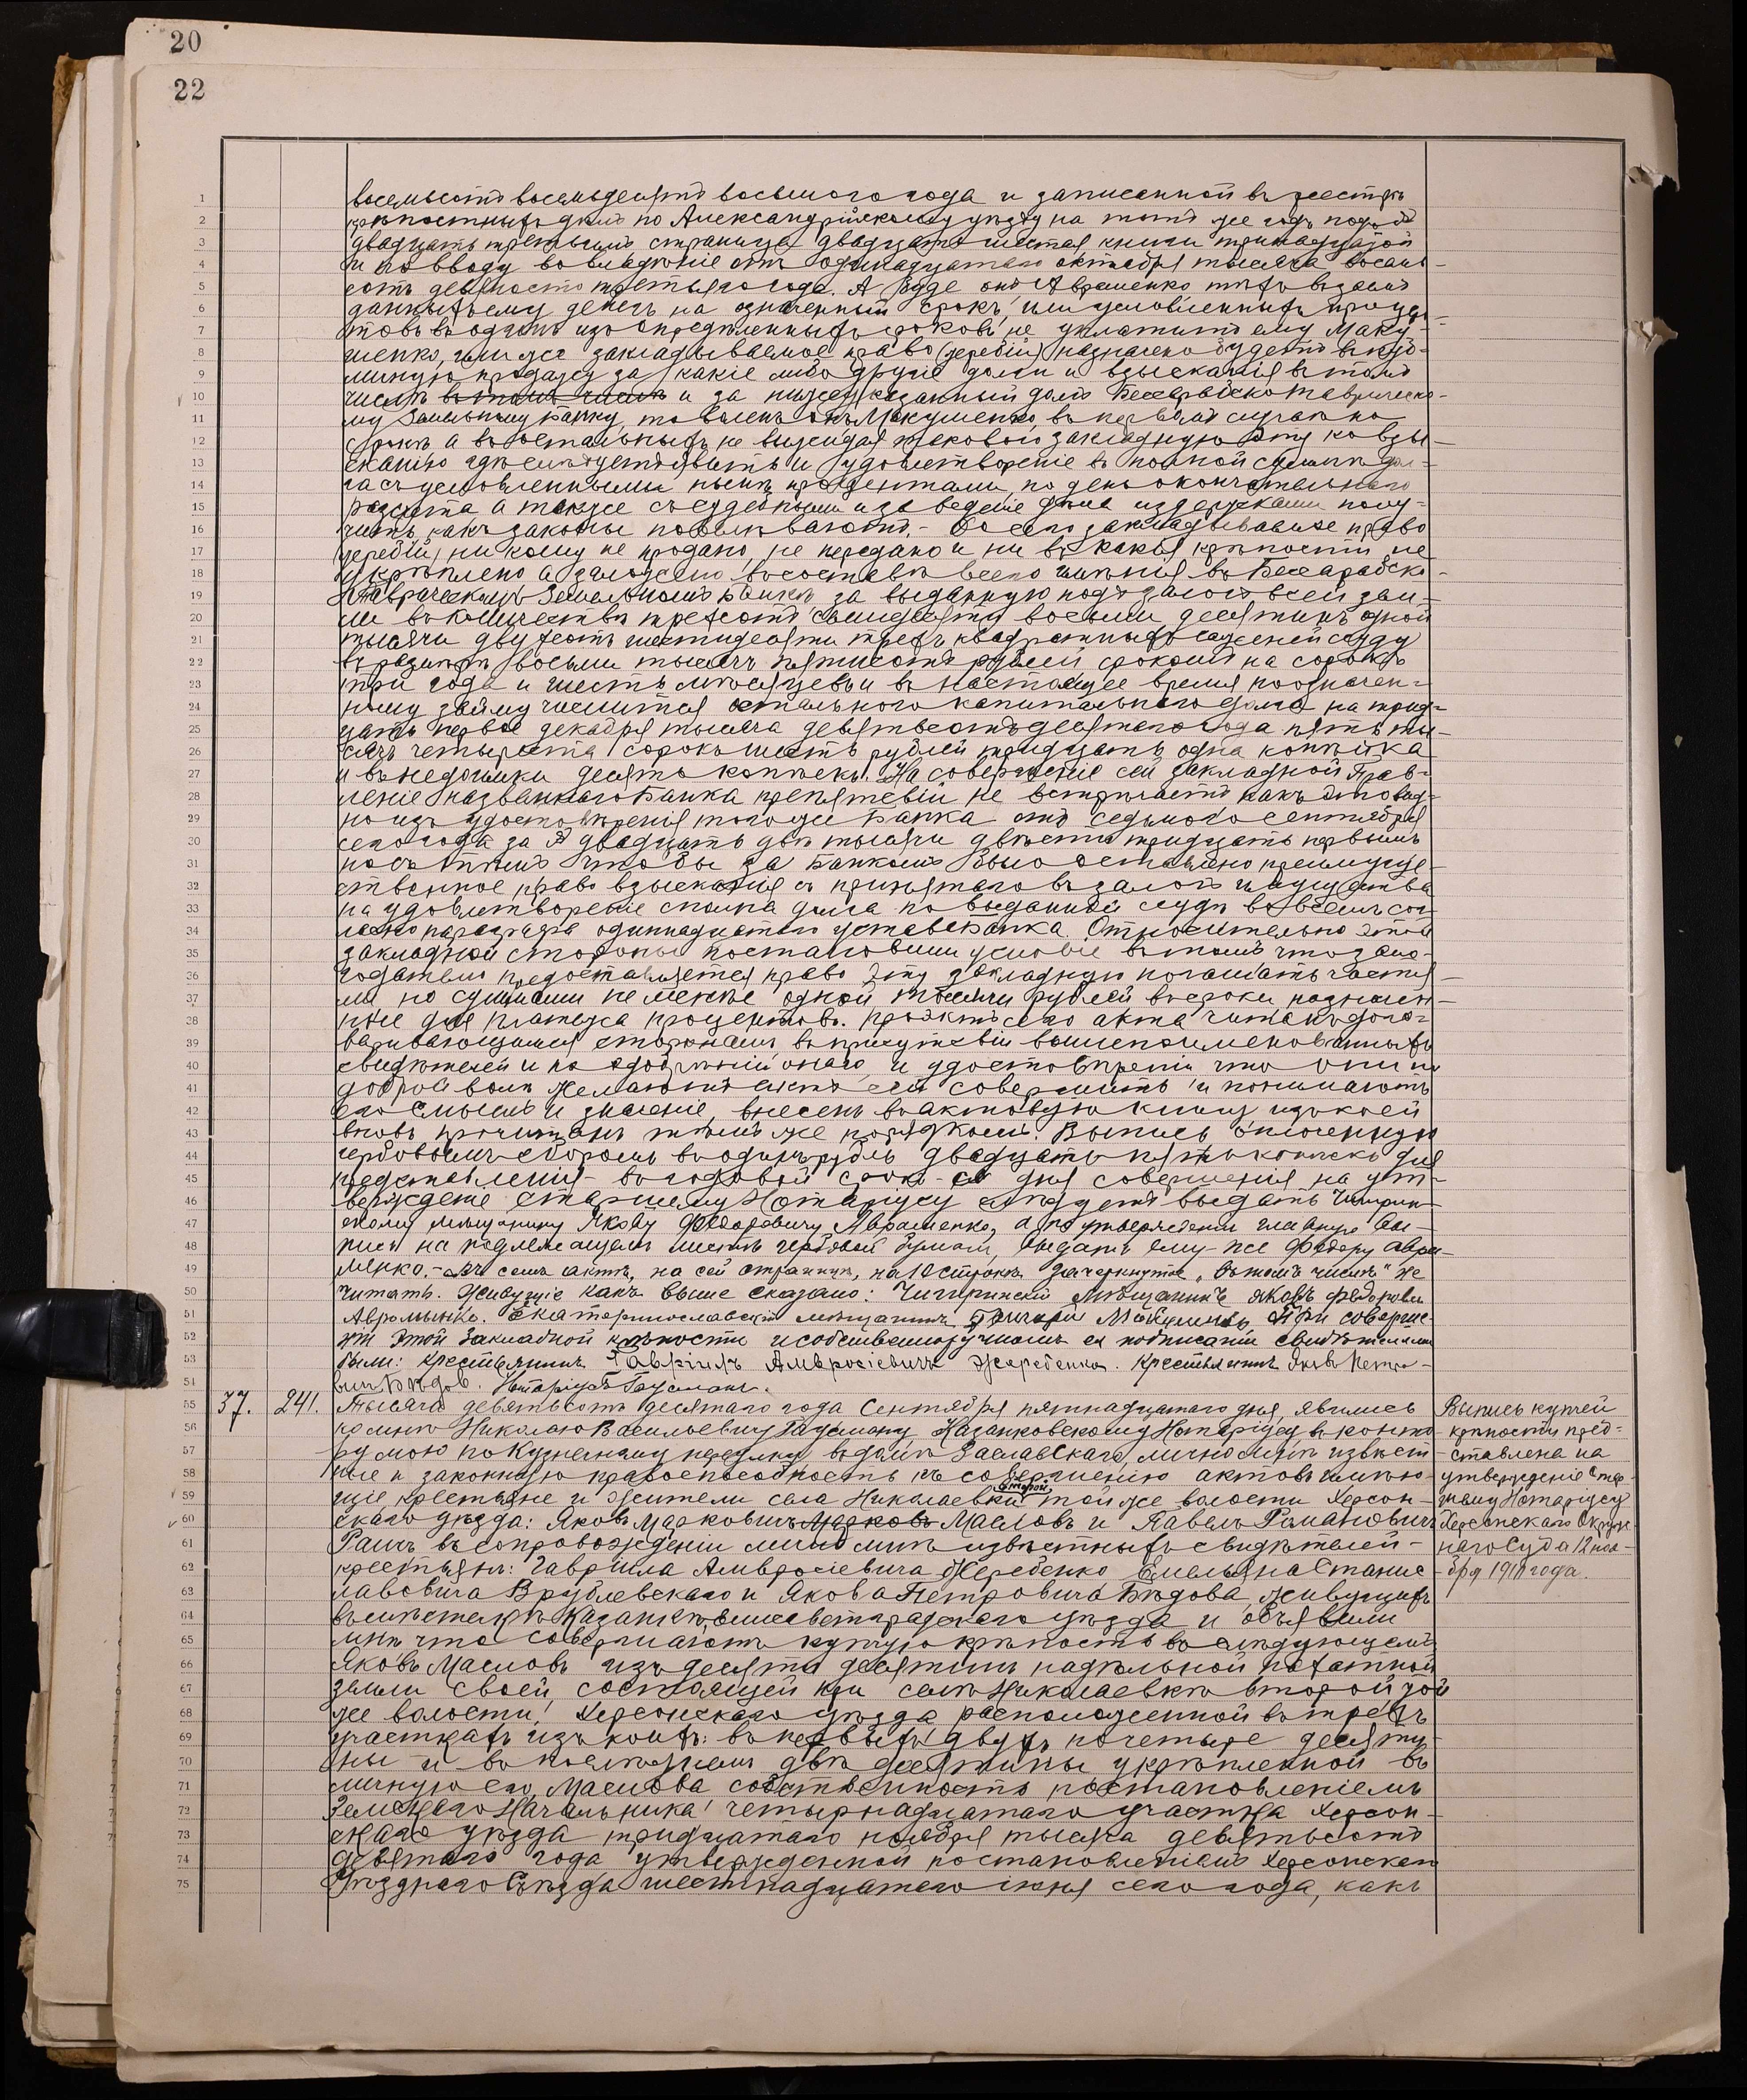 20
22
1 восемьсотъ восемьдесятъ восьмого года и записанной въ реестръ
2 крѣпостныхъ дѣлъ по Александрійскому уѣзду на тотъ же годъ подъ №
3 двадцать третьимъ страница двадцать шестая книги тринадцатой
4 и по вводу во владѣніе отъ одинадцатаго октября тысяча восемь-
5 сотъ девяносто третьяго года. А буде онъ Авраменко тѣхъ взятыхъ
6 данныхъ ему денегъ на означенный срокъ, или условленныхъ процен-
7 товъ въ одинъ изъ опредѣленныхъ сроковъ не уплатитъ ему Маку-
8 шенко, или же закладываемое право (жеребій) назначено будетъ въ пуб-
9 личную продажу за какіе либо другіе долги и взысканія въ томъ
10 числѣ въ томъ числѣ и за нижеуказанный долгъ Бессарабско Таврическо-
11 му Земельному Банку, то воленъ онъ Макушенко, въ первомъ случаѣ на
12 срокъ а въ остальныхъ не выжидая такового закладную эту ко взы-
13 сканію гдѣ слѣдуетъ явить и удовлетвореніе въ полной суммѣ дол-
14 га съ условленными процентами, по день окончательнаго
15 разсчета а также съ судебными и за веденіе дѣла издержками полу-
16 чить, какъ законы повелѣваютъ. До сего закладываемое право
17 (жеребій) ни кому не продано, не передано и ни въ какія крѣпости не
18 укрѣплено а заложено въ составѣ всего имѣнія въ Бессарабско-
19 Таврическомъ Земельномъ Банкѣ за выданную подъ залогъ всей зем-
20 ли въ количествѣ трехсотъ восьми десятинъ одной
21 тысячи двухсотъ шестидесяти трехъ квадратныхъ саженей ссуду
22 въ размѣрѣ восьми тысячъ пятисотъ рублей срокомъ на сорокъ
23 три года и шесть мѣсяцевъ и въ настоящее время по означен-
24 ному займу числится остального капитальнаго долга на трид-
25 цать первое декабря тысяча девятьсотъ десятаго года пять ты-
26 сячъ четыреста сорокъ шесть рублей тридцать одна копѣйка
27 и въ недоимки десять копѣекъ. На совершеніе сей закладной Прав-
28 леніе названнаго Банка препятствій не встрѣчаетъ какъ это вид-
29 но изъ удостовѣренія того же Банка отъ седьмого сентября
30 сего года за № двадцать двѣ тысячи двѣсти тридцать первымъ
31 съ тѣмъ чтобы за Банкомъ было оставлено преимуще-
32 ственное право взысканія съ принятаго въ залогъ имущества
33 на удовлетвореніе сполна долга по выданной ссудѣ во всемъ сог-
34 ласно параграфа одиннадцатаго устава Банка. Относительно этой
35 закладной стороны постановили условіе въ томъ что зало-
36 годателю предоставляется право эту закладную погашать частя-
37 ми, но суммами не менѣе одной тысячи рублей въ сроки назначен-
38 ные для платежа процентовъ. Проэктъ сего акта читанъ дого-
39 варивающимся сторонамъ въ присутствіи вышепоименованныхъ
40 свидѣтелей и по одобреніи онаго, и удостовѣреніи что они по
41 доброй волѣ желаютъ актъ сей совершить и понимаютъ
42 его смыслъ и значеніе, внесенъ въ актовую книгу изъ коей
43 вновь прочитанъ тѣмъ же порядкомъ. Выпись оплоченную
44 гербовымъ сборомъ въ одинъ рубль двадцать пять копѣекъ для
45 представленія въ годовой срокъ со дня совершенія на ут-
46 вержденіе старшему Нотаріусу слѣдуетъ выдать Чигирин-
47 скому мѣщанину Якову Федоровичу Авраменко, а по утвержденіи главную вы-
48 пись на подлежащемъ листѣ гербовой бумаги, выдать ему-же Федору Авра-
49 менко.- Въ семъ актѣ, на сей страницѣ, на 10 строкѣ зачеркнутое „въ томъ числѣ" не
50 читать. Живущіе какъ выше сказано: Чигиринскій Мѣщанинъ Яковъ Федоровъ
51 Авраменко. Екатеринославскій мѣщанинъ Григорій Макушенко При соверше-
52 ніи этой Закладной крѣпости и собственноручномъ ея подписаніи свидѣтелями
53 были: крестьянинъ Гавріилъ Амвросіевичъ Жеребенко. Крестьянинъ Яковъ Петро-
51 вичъ Бѣдов. Нотаріусъ Гаусманъ.
55 37. 241. Тысяча девятьсотъ десятаго года Сентября пятнадцатаго дня, явились Выпись купчей
56 ко мнѣ Николаю Васильевичу Гаусману, Казанковскому Нотаріусу въ конто- крѣпости пред-
57 ру мою по Кузнечному переулку въ домѣ Заславскаго, лично мнѣ извѣст- ставлена на
58 ные и законную правоспособность къ совершенію актовъ имѣю- утвержденіе Стар-
Второй
59 щіе, крестьяне и жители села Николаевки той же волости Херсон- шему Нотаріусу
60 скаго уѣзда: Яковъ Марковичъ Марковъ Масловъ и Павелъ Романовичъ Херсонскаго Окруж-
61 Рашъ въ сопровожденіи лично мнѣ извѣстныхъ свидѣтелей- наго Суда 12 ноя-
62 крестьянъ: Гавріила Амвросіевича Жеребенко Емельяна Станис- бря 1910 года.
63 лавовича Врублевскаго и Якова Петровича Бѣдова, живущихъ
64 въ мѣстечкѣ Казанкѣ, Елисаветградскаго уѣзда и объявили
65 мнѣ что совершаютъ купчую крѣпость въ слѣдующемъ
66 Яковъ Масловъ изъ десяти десятинъ надѣльной пахатной
67 земли своей, состоящей при селѣ Николаевкѣ второй той
68 же волости, Херсонскаго уѣзда расположенной въ трехъ
69 участкахъ изъ коихъ: въ первыхъ двухъ по четыре десяти-
70 ны и въ послѣднемъ двѣ десятины укрѣпленной въ
71 личную его, Маслова собственность постановленіемъ
72 Земскаго Начальника четырнадцатаго участка Херсон-
73 скаго уѣзда тридцатаго ноября тысяча девятьсотъ
74 девятаго года утвержденной постановленіемъ Херсонскаго
75 Уѣзднаго Съѣзда шестнадцатаго іюня сего года, какъ